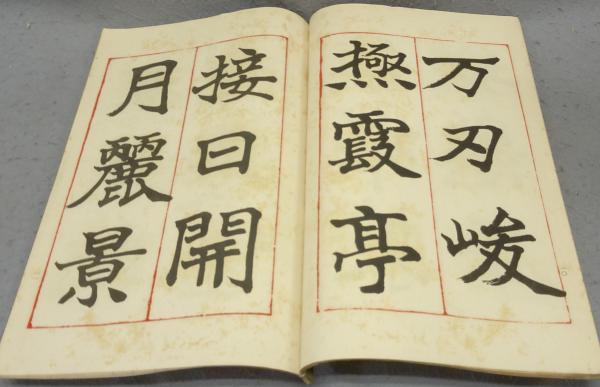 万刃峻
㷡霞亭
接日開
月麗景